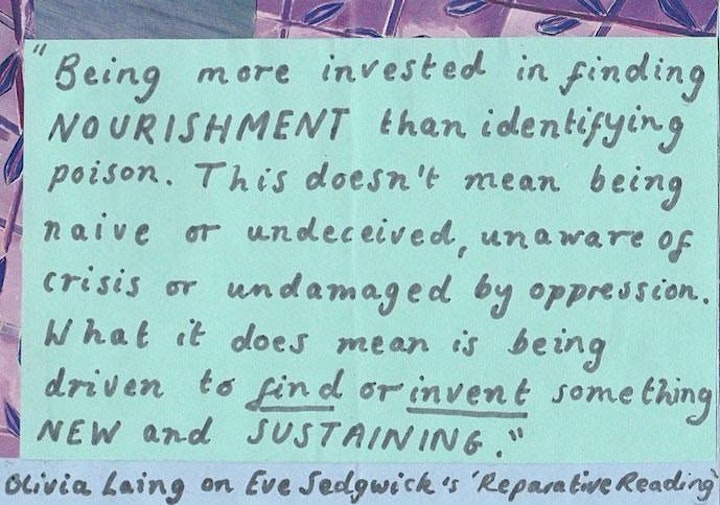 "Being more invested in finding
NOURISHMENT than identifying
poison. This doesn't mean being
naive or undeceived, unaware of
crisis or undamaged by oppression.
What it does mean is being
driven to find or invent something
NEW and SUSTAINING."
Olivia Laing on Eve Sedgwick's 'Reparative Reading'